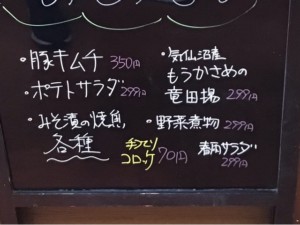 ・豚キムチ 350円
・ポテトサラダ 299円
・みそ漬の焼魚
各種
手づくり
コロッケ 70円
・気仙沼産
もうかさめの
竜田揚 299円
・野菜煮物 299円
春雨サラダ
299円